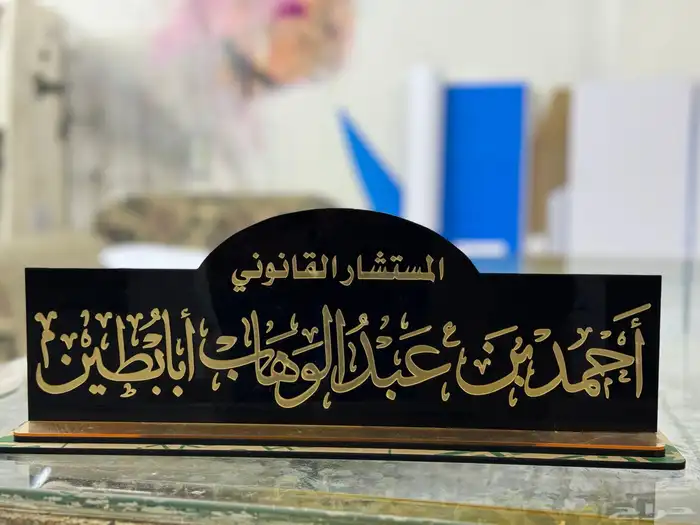 المستشار القانوني
أَحمد بن عَبدُ الوهاب أبابُطين